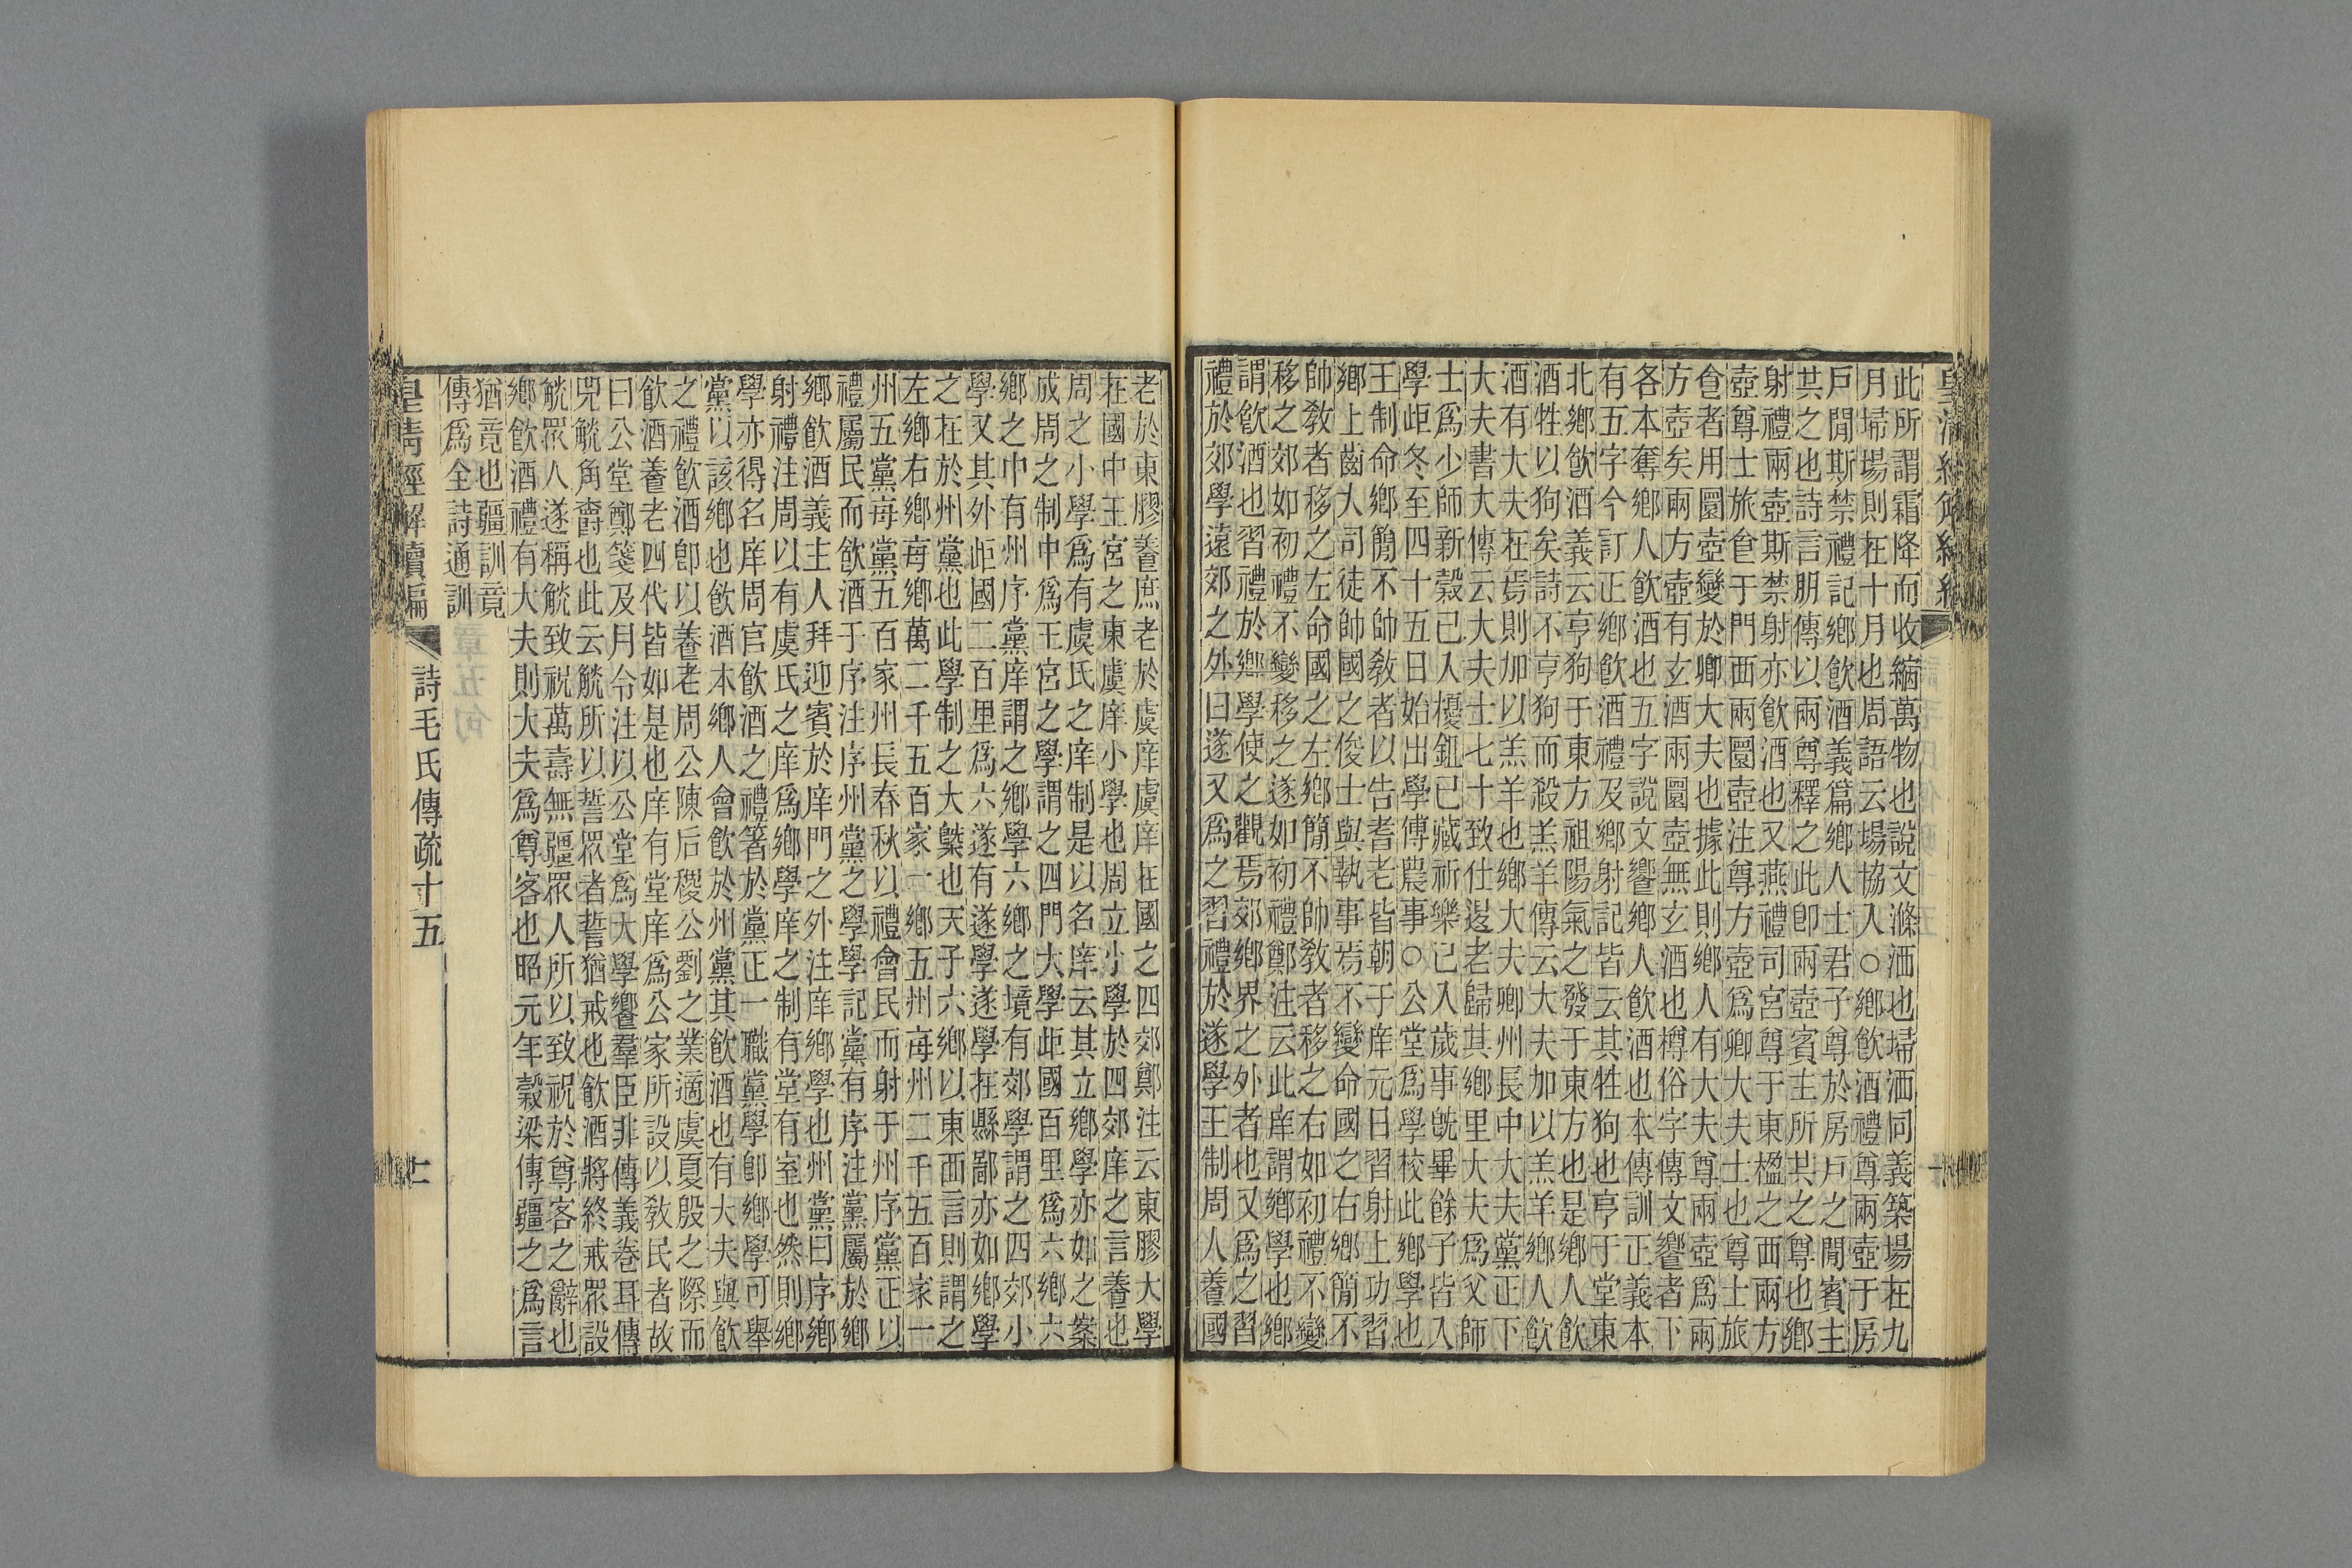 此所謂霜降而收縮萬物也說文滌洒也埽洒同義築場在九
月埽場則在十月也周語云場協入○鄉飲酒禮尊兩壺于房
戶閒斯禁禮記鄉飲酒義篇鄉人士君子尊於房戶之閒賓主
共之也詩言朋傳以兩尊釋之此卽兩壺賓主所共之尊也鄉
射禮兩壺斯禁射亦飲酒也又燕禮司宮尊于東楹之西兩方
壺尊士旅食于門西兩圜壺注尊方壺爲卿大夫士也尊士旅
食者用圜壺變於卿大夫也據此則鄉人有大夫尊兩壺爲兩
方壺矣兩方壺有玄酒兩圜壺無玄酒也樽俗字傳文饗者下
各本奪鄉人飲酒也五字說文饗鄉人飲酒也本傳訓正義本
有五字今訂正鄉飲酒禮及鄉射記皆云其牲狗也亨于堂東
北鄉飲酒義云亨狗于東方祖陽氣之發于東方也是鄉人飲
酒牲以狗矣詩不亨狗而殺羔羊傳云大夫加以羔羊鄉人飲
酒有大夫在焉則加以羔羊也鄉大夫卿州長中大夫黨正下
大夫書大傳云大夫士七十致仕退老歸其鄉里大夫爲父師
士爲少師新穀已入耰鉏已藏祈樂已入歲事旣畢餘子皆入
學歫冬至四十五日始出學傅農事○公堂爲學校此鄉學也
王制命鄉簡不帥敎者以告耆老皆朝于庠元日習射上功習
鄉上齒大司徒帥國之俊士與執事焉不變命國之右鄉簡不
帥敎者移之左命國之左鄉簡不帥敎者移之右如初禮不變
移之郊如初禮不變移之遂如初禮鄭注云此庠謂鄉學也鄉
謂飲酒也習禮於鄉學使之觀焉郊鄉界之外者也又爲之習
禮於郊學遠郊之外曰遂又爲之習禮於遂學王制周人養國
老於東膠養庶老於虞庠虞庠在國之四郊鄭注云東膠大學
在國中王宮之東虞庠小學也周立小學於四郊庠之言養也
周之小學爲有虞氏之庠制是以名庠云其立鄉學亦如之案
成周之制中爲王宮之學謂之四門大學歫國百里爲六鄉六
鄉之中有州序黨庠謂之鄉學六鄉之境有郊學謂之四郊小
學又其外歫國二百里爲六遂有遂學遂學在縣鄙亦如鄉學
之在於州黨也此學制之大槩也天子六鄉以東西言則謂之
左鄉右鄉每鄉萬二千五百家一鄉五州每州二千五百家一
州五黨每黨五百家州長春秋以禮會民而射于州序黨正以
禮屬民而飲酒于序注序州黨之學學記黨有序注黨屬於鄉
鄉飲酒義主人拜迎賓於庠門之外注庠鄉學也州黨曰序鄉
射禮注周以有虞氏之庠爲鄉學庠之制有堂有室也然則鄉
學亦得名庠周官飲酒之禮箸於黨正一職黨學卽鄉學可舉
黨以該鄉也飲酒本鄉人會飲於州黨其飲酒也有大夫與飲
之禮飲酒卽以養老周公陳后稷公劉之業適虞夏殷之際而
飲酒養老四代皆如是也庠有堂庠爲公家所設以敎民者故
曰公堂鄭箋及月令注以公堂爲大學饗羣臣非傳義卷耳傳
兕觥角爵也此云觥所以誓眾者誓猶戒也飲酒將終戒眾設
觥眾人遂稱觥致祝萬壽無疆眾人所以致祝於尊客之辭也
鄉飲酒禮有大夫則大夫爲尊客也昭元年穀梁傳疆之爲言
猶竟也疆訓竟
傳爲全詩通訓
皇清經解續編
詩毛氏傳疏十五